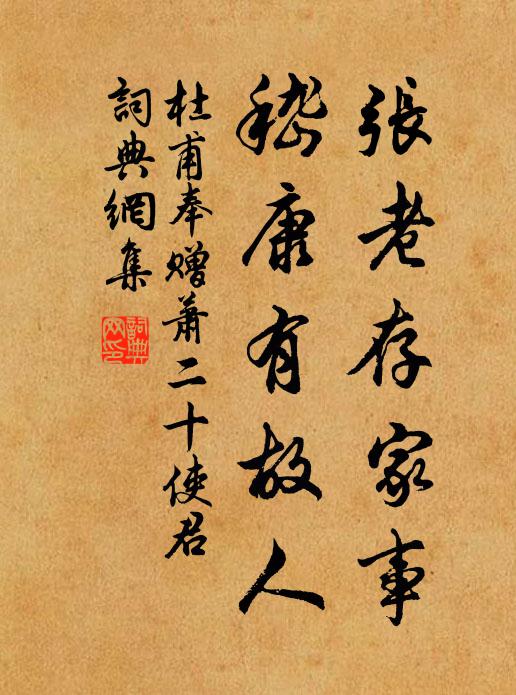 張老存家事
嵇康有故人
杜甫奉贈蕭二十使君
詞典網集
詞典
网印